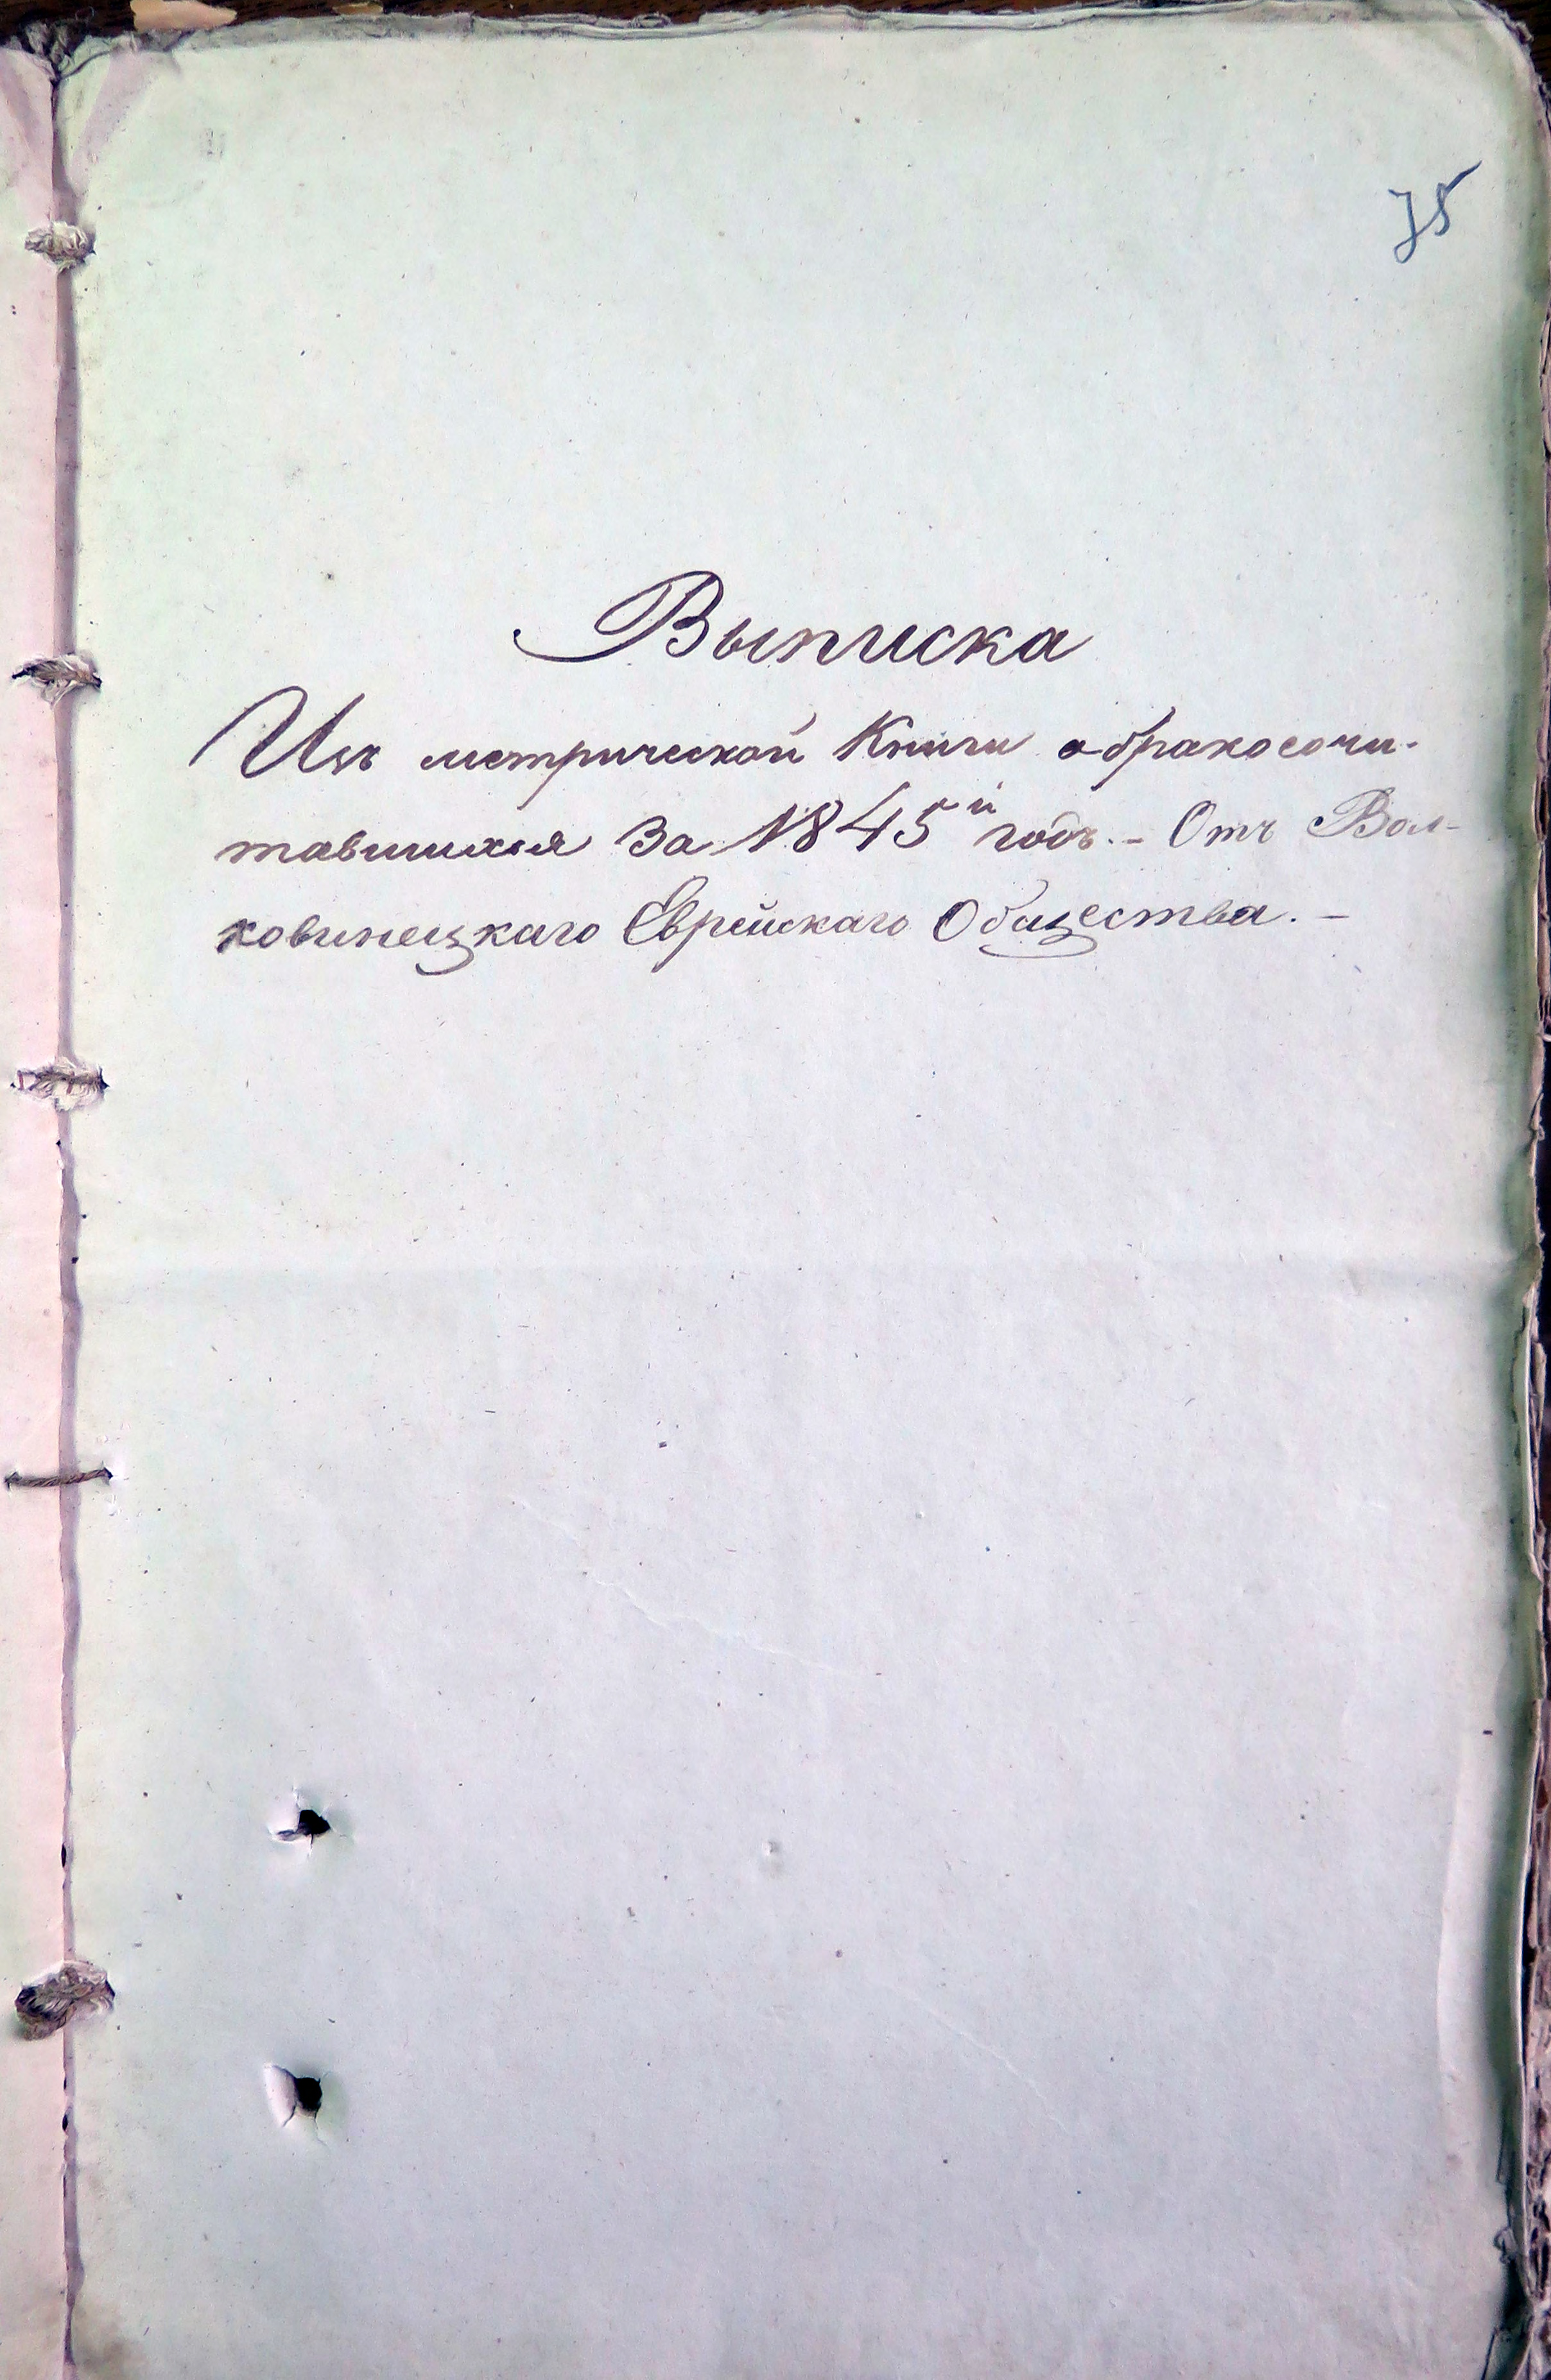 75
Выписка
Изъ метрической Книги о бракосочи-
тавшихся За 1845й годъ. - Отъ Вол-
ковинецкаго Еврейскаго Общества. -